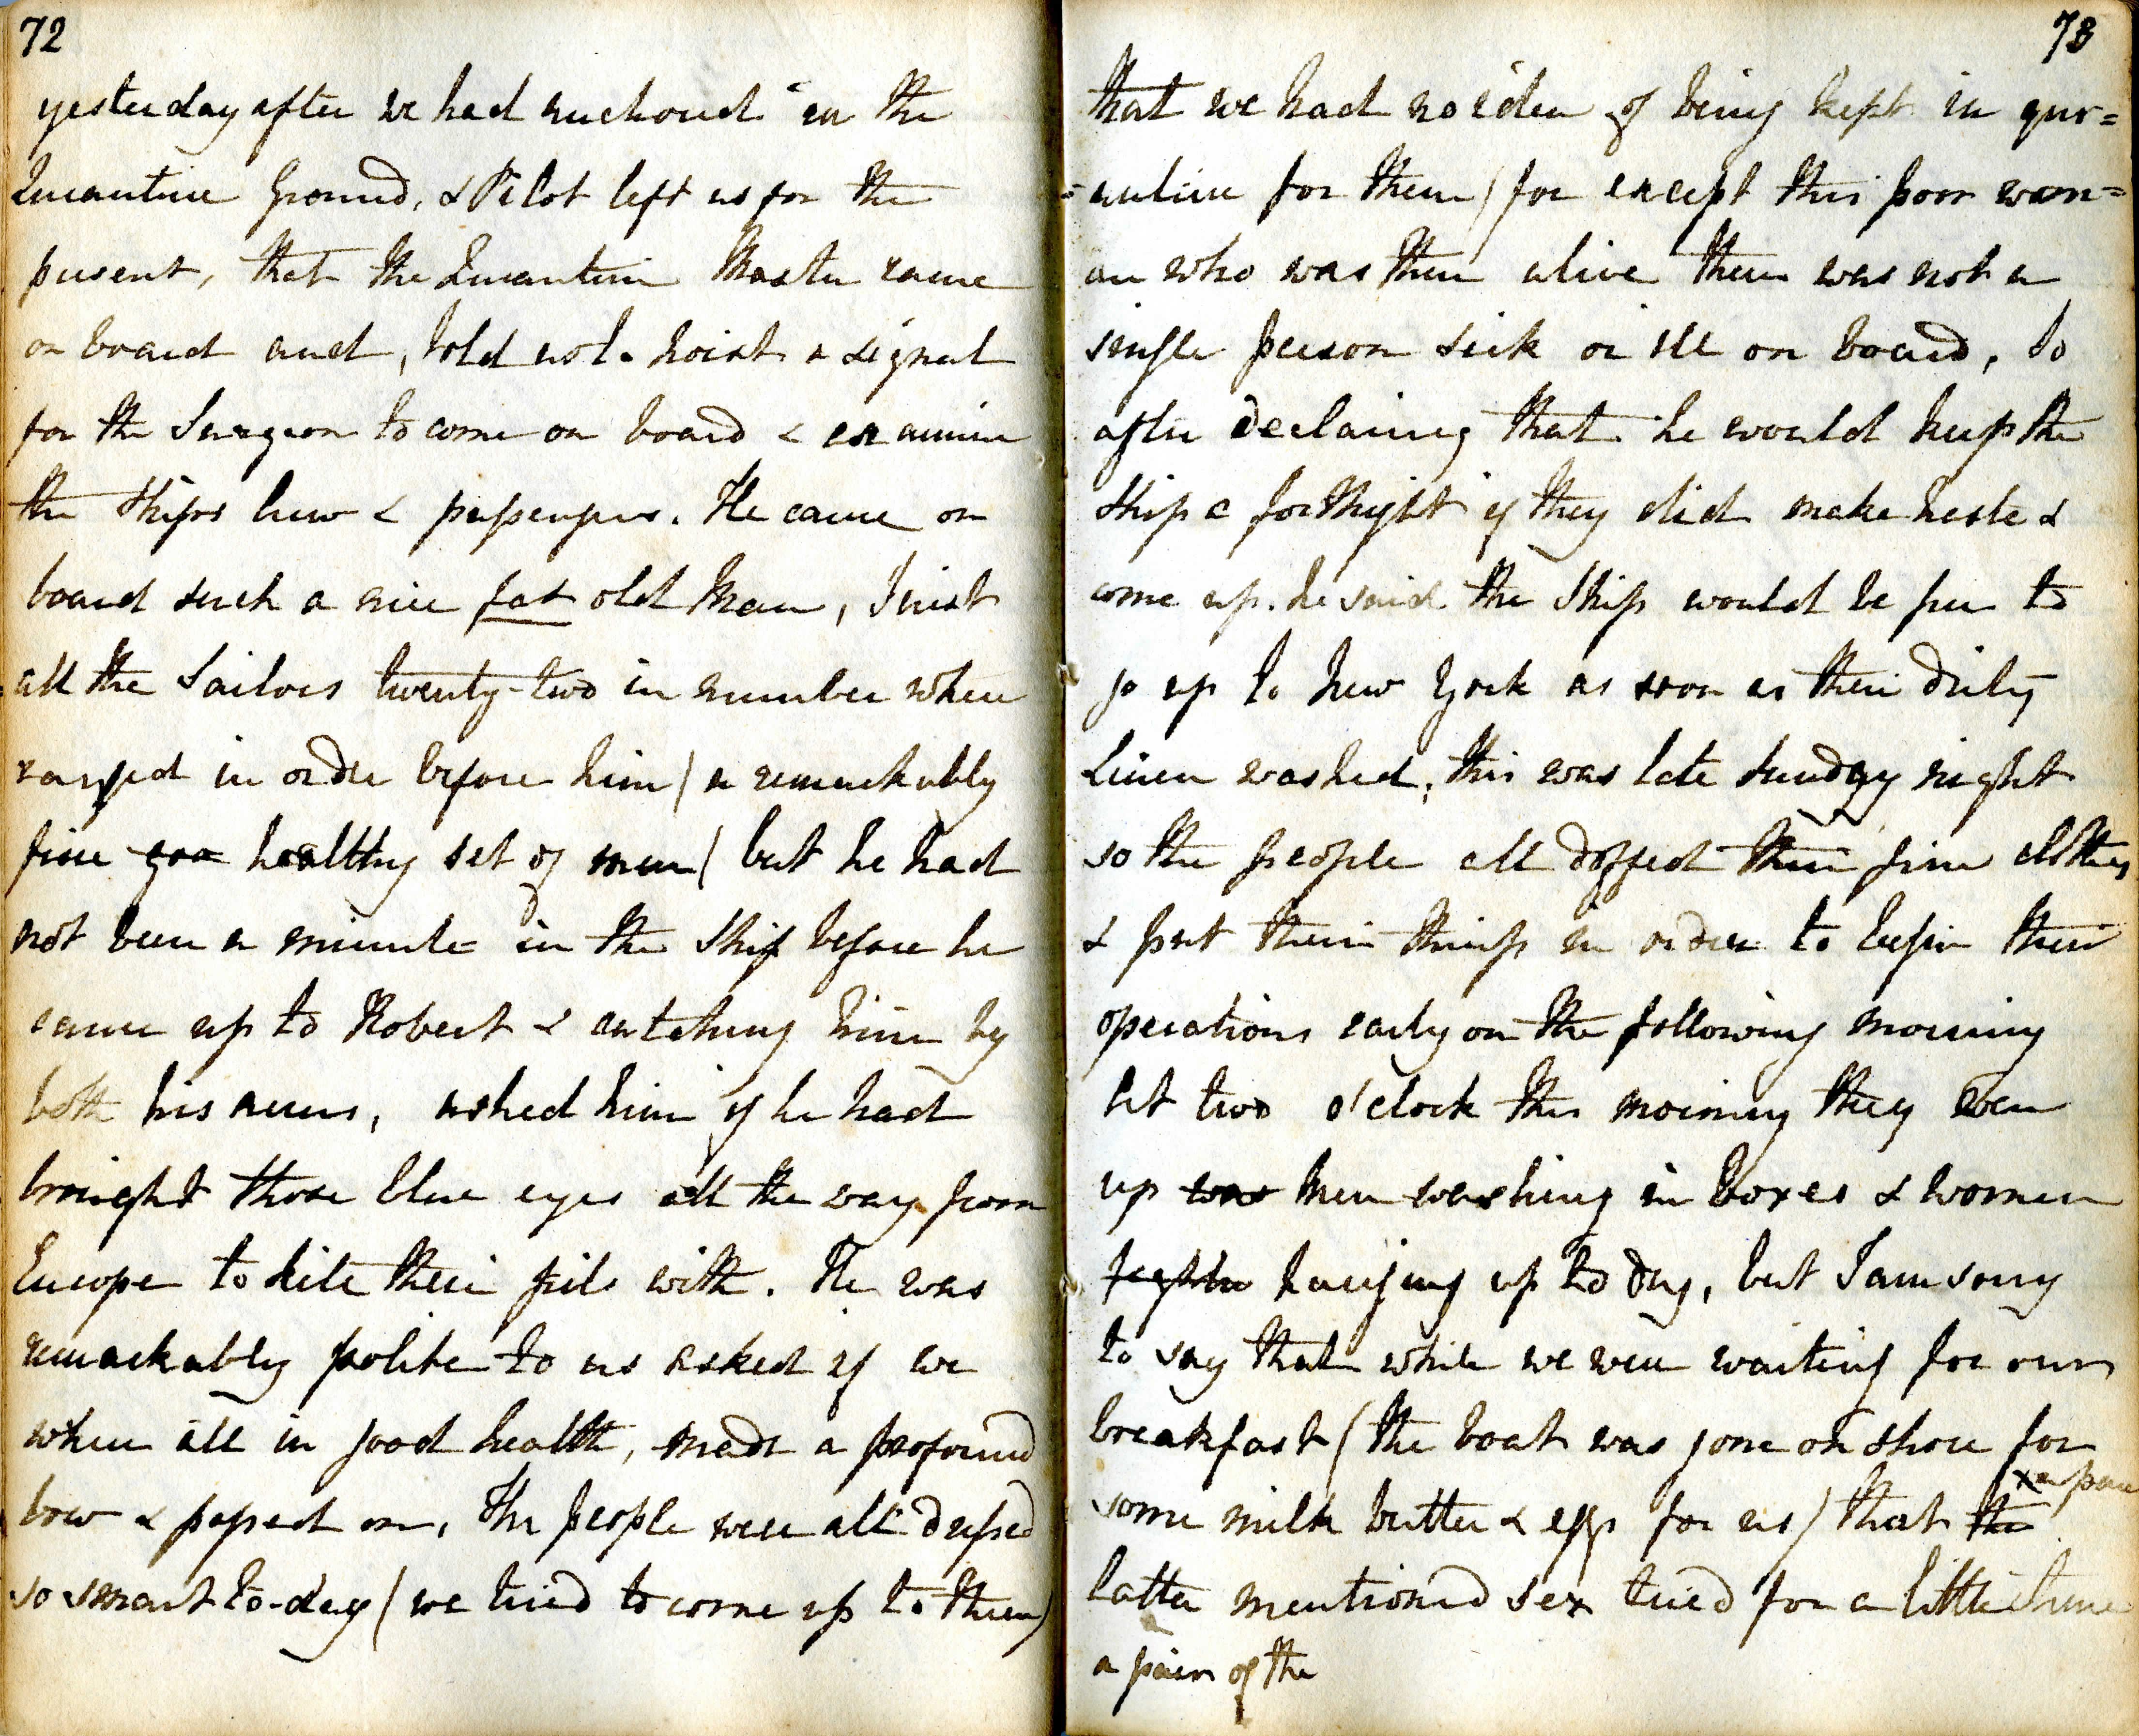 72
yesterday after we had anchored in the
Quarantine Ground, & Pilot left us for the
present, that the Quarantine Master came
on board and, told us to hoist a signal
for the Surgeon to come on board & examine
the Ships Crew & passengers. He came on
board such a nice fat old Man, first
all the Sailors twenty-two in number where
ranged in order before him / a remarkably
fine healthy set of men / but he had
not been a minute in the Ship before he
came up to Robert & catching him by
both his arms, asked him if he had
brought those blue eyes all the way from
Europe to kile their girls with. He was
remarkably polite to us asked if we
where all in good health, made a profound
bow & passed on, The people were all dressed
so smart to-day (we tried to come up to them)
73
that we had no idea of being kept in qur=
=antine for them / for except this poor wom=
an who was then alive there was not a
single person sick or ill on board, So
after declaring that he would keep the
Ship a forthight if they did make haste &
come up. he said the Ship would be free to
go up to New York as soon as their dirty
Linen washed, this was late Sunday night
so the people all doffed their fine clothes
& put their things in order to begin their
operations early on the following morning
At two o'clock this morning they were
up was Men washing in boxes & women
hanging up to dry, but I am sorry
to say that while we were waiting for our
breakfast (the boat was gone on shore for
some milk butter & eggs for us) that the
x a pair
latter mentioned sex tried for a little time
a pair of the